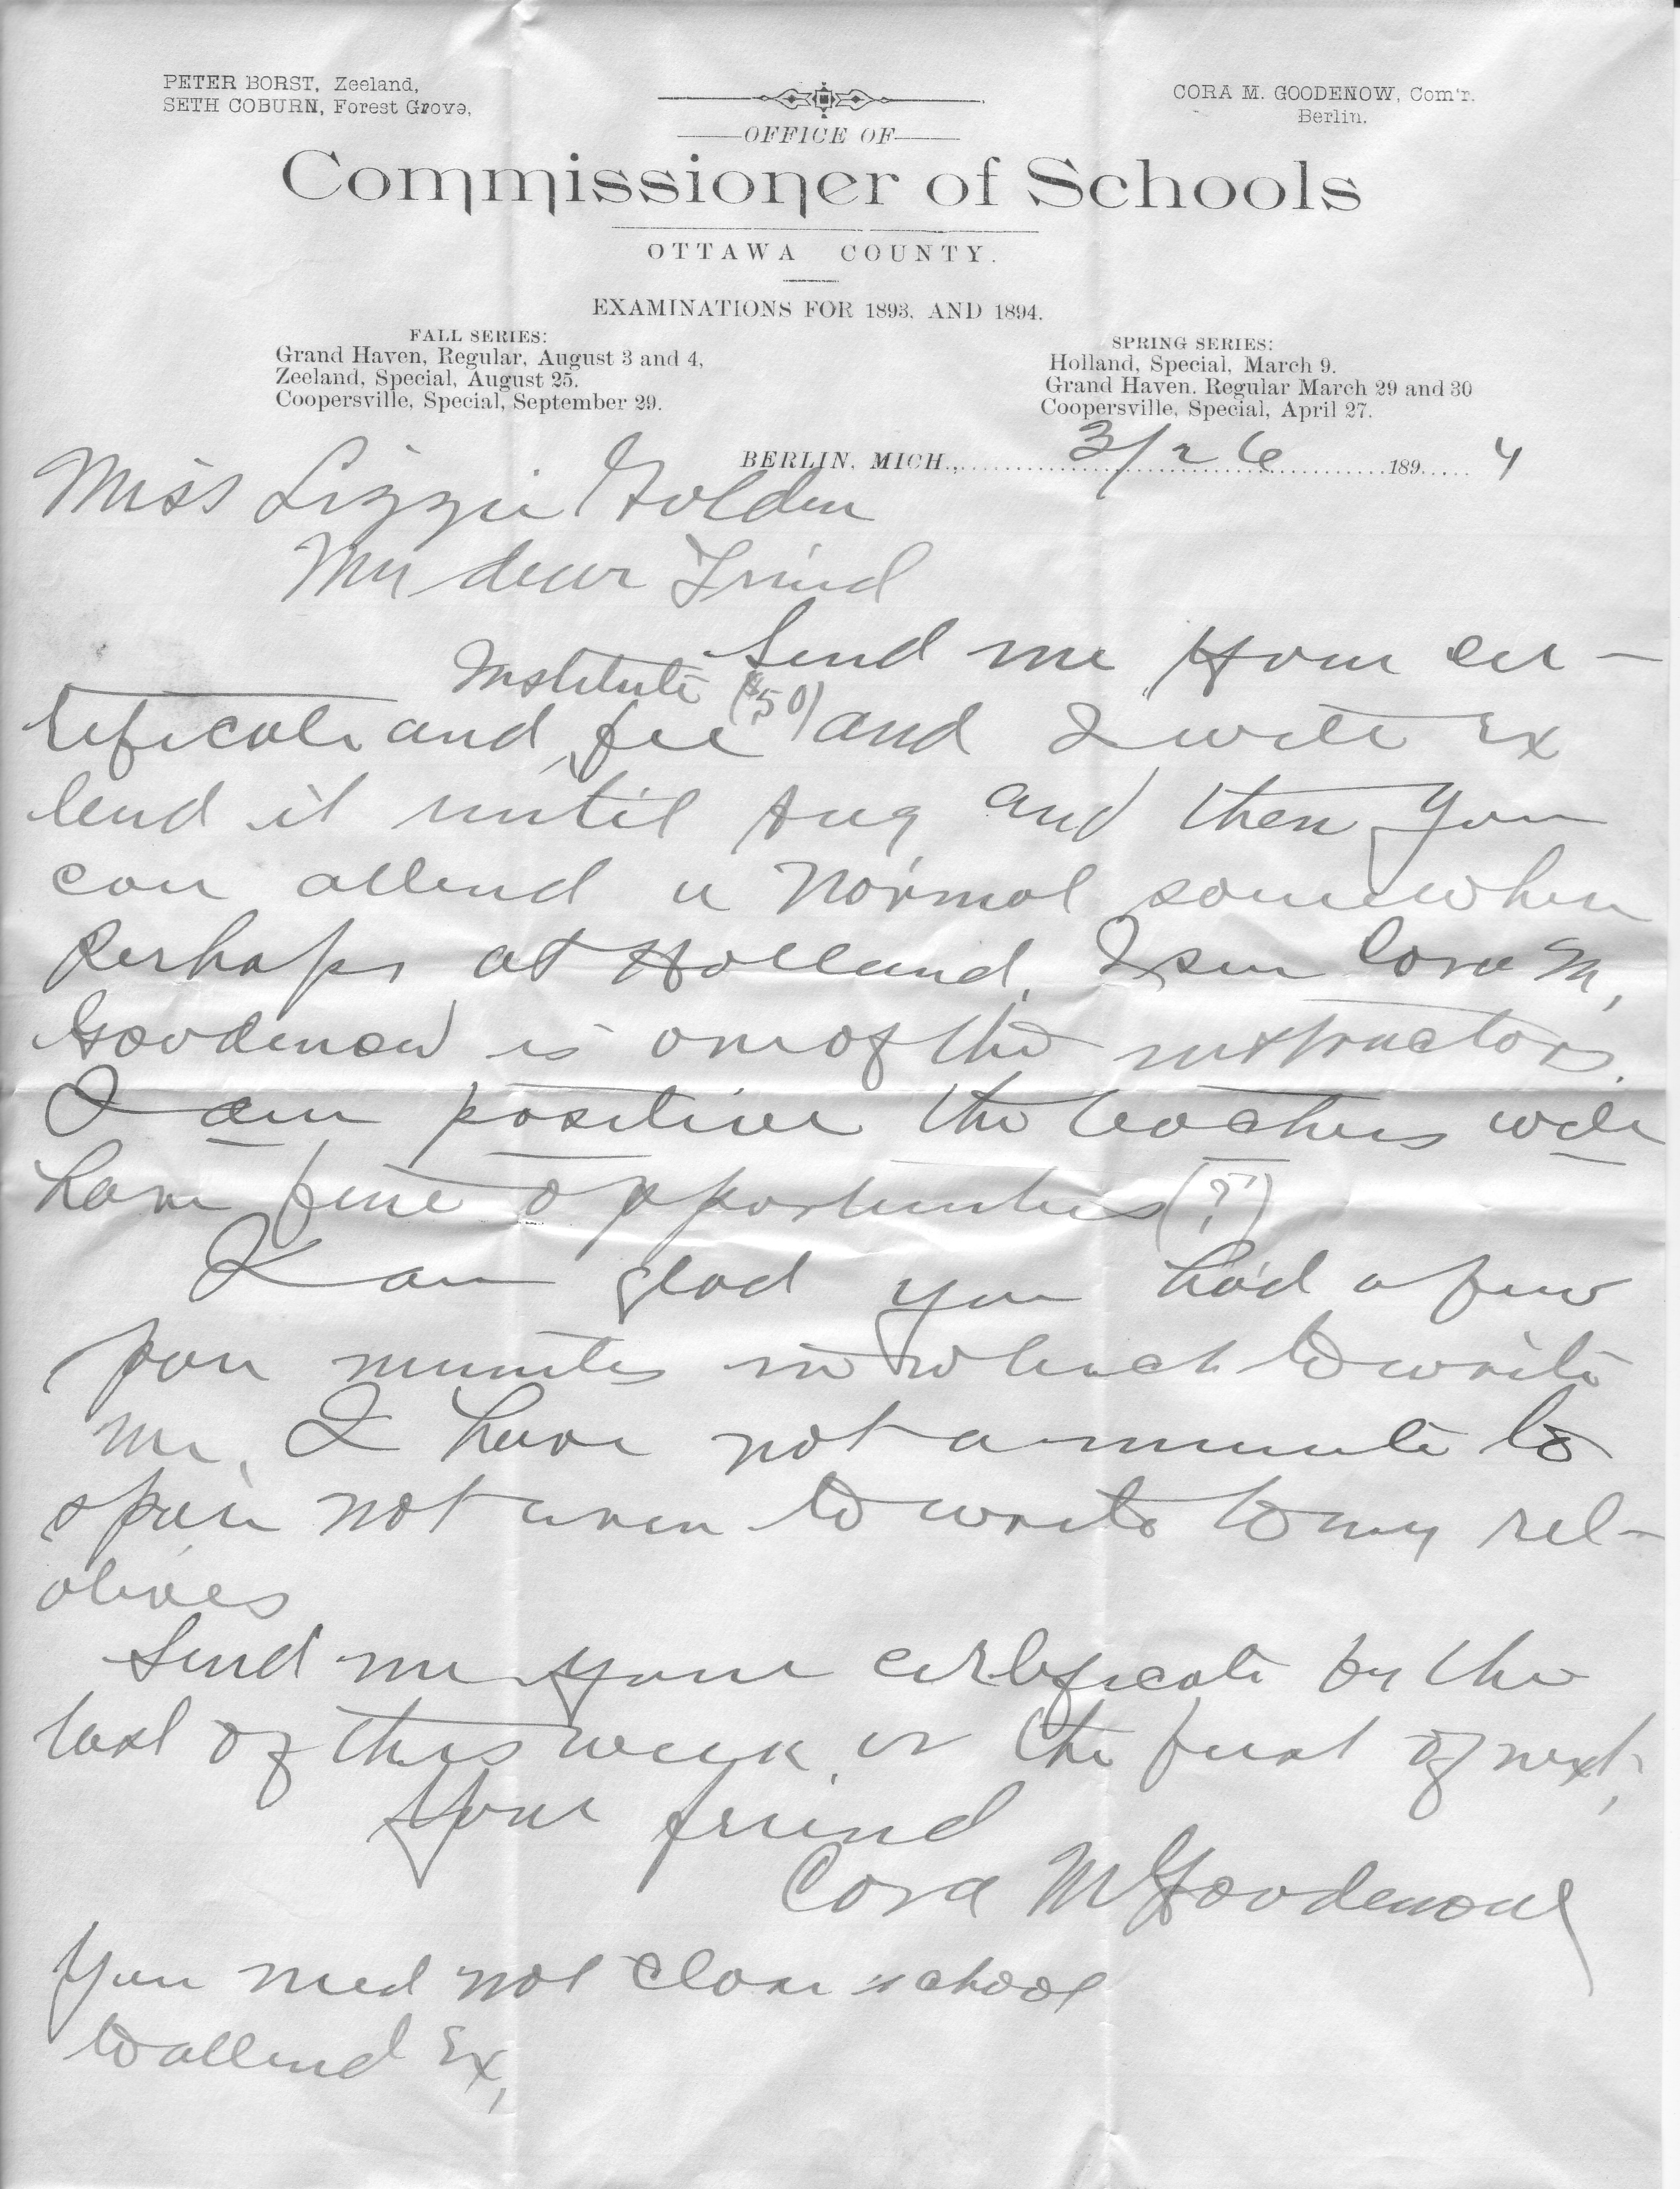 PETER BORST, Zeeland,
SETH COBURN, Forest Grove,
CORA M. GOODENOW, Com'r.
Berlin.
OFFICE OF
Commissioner of Schools
OTTAWA COUNTY.
EXAMINATIONS FOR 1893, AND 1894.
FALL SERIES:
Grand Haven, Regular, August 3 and 4,
Zeeland, Special, August 25.
Coopersville, Special, September 29.
SPRING SERIES:
Holland, Special, March 9.
Grand Haven. Regular March 29 and 30
Coopersville, Special, April 27.
BERLIN, MICH., 3/26 189 4
Miss Lizzie Golden
My dear Friend
Send me your cer-
Institute ($.50)
tificate and fee and I will ex
tend it until Aug and then you
can attend a Normal somewhere
Perhaps at Holland. I see Cora M.
Goodenow is one of the instructors.
I am positive the teachers will
have fine opportunities (?)
I am glad you had a few
spare minutes in which to write
me. I have not a minute to
spare not even to write to my rel-
atives
Send me your certificate by the
last of this week or the first of next,
Your friend
Cora M Goodenow
You need not close school
to attend Ex,